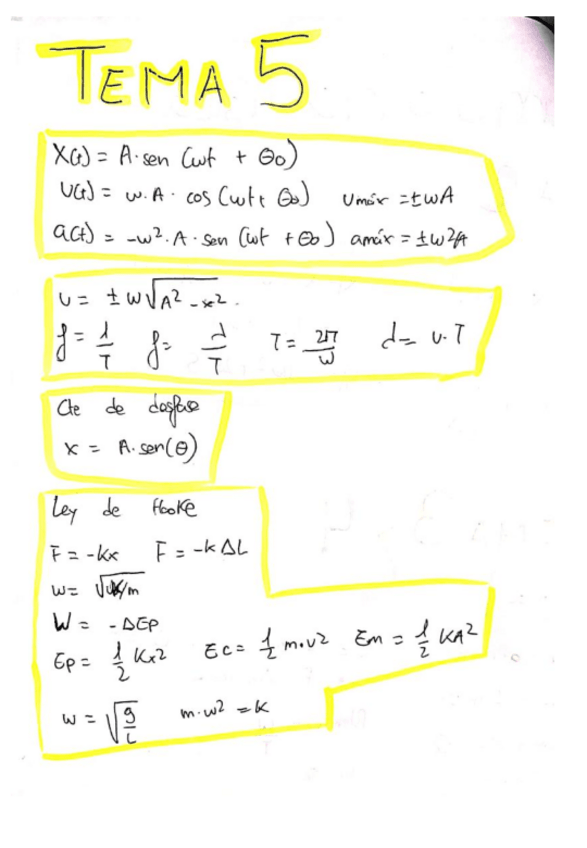 TEMA 5
X(t) = A·sen (wt + θo)
v(t) = w·A· cos (wt + θo) vmáx = ±wA
a(t) = -w²·A·sen (wt + θo) amáx = ±w²A
v = ±w√A² - x².
f = 1/T f = 1/T T = 2π/w d = v·T
Cte de desfase
x = A·sen(θ)
Ley de Hooke
F = -Kx F = -k ΔL
w = √K/m
W = -ΔEp
Ep = 1/2 Kx² Ec = 1/2 m·v² Em = 1/2 KA²
w = √g/L m·w² = K